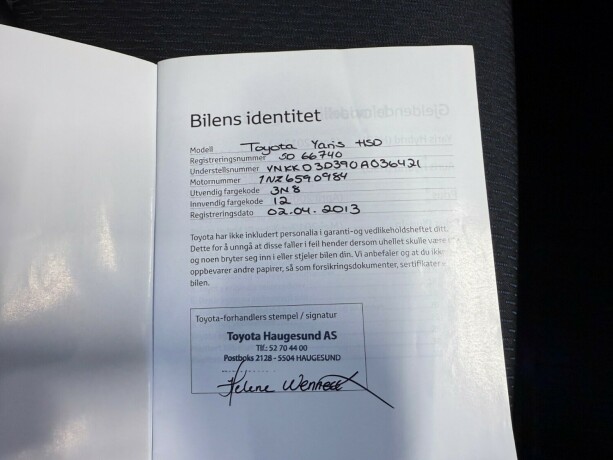 Bilens identitet
Modell Toyota Yaris HSD
Registreringsnummer SO 66740
Understellsnummer VNKKD3D390A036421
Motornummer 1NZ6590984
Utvendig fargekode 3N8
Innvendig fargekode 12
Registreringsdato 02.04.2013
Toyota har ikke inkludert personalia i garanti-og vedlikeholdsheftet ditt.
Dette for å unngå at disse faller i feil hender dersom uhellet skulle være
og noen bryter seg inn i eller stjeler bilen din. Vi anbefaler og at du ikke
oppbevarer andre papirer, så som forsikringsdokumenter, sertifikater
bilen.
Toyota-forhandlers stempel / signatur
Toyota Haugesund AS
Tlf.: 52 70 44 00
Postboks 2128 - 5504 HAUGESUND
Helene